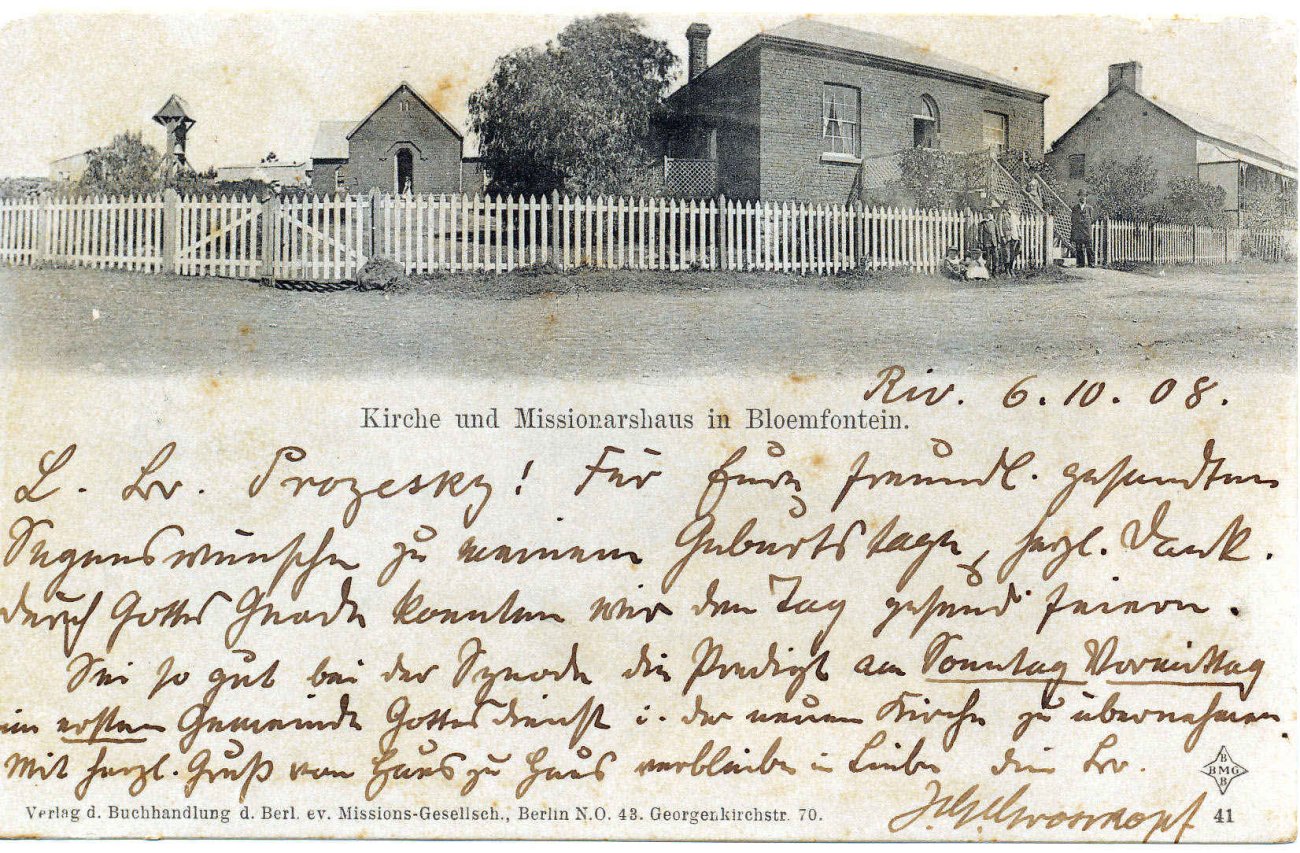 Riv. 6.10.08.
Kirche und Missionarshaus in Bloemfontein.
L. Br. Prozesky! Für Eure freundl. gesandten
Segenswünsche zu meinem Geburtstage, herzl. Dank.
Durch Gottes Gnade konnten wir den Tag gesund feiern.
Sei so gut bei der Synode die Predigt am Sonntag Vormittag
im ersten Gemeinde Gottesdienst i. der neuen Kirche zu übernehmen.
Mit herzl. Gruß von Haus zu Haus verbleibe in Liebe dein Br.
Grosskopf
Verlag d. Buchhandlung d. Berl. ev. Missions-Gesellsch., Berlin N.O. 43. Georgenkirchstr. 70.
B
BMG
B
41